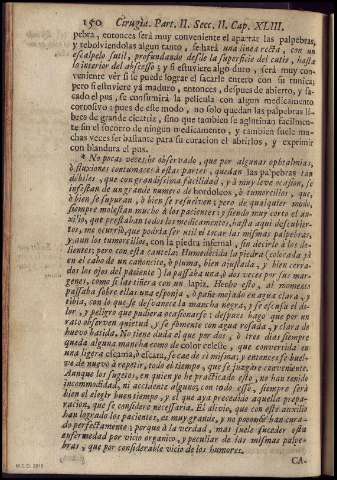 150 Cirugia. Part. II. Secc. II. Cap. XLIII.
pebra, entonces será muy conveniente el apartar las palpebras,
y rebolviendolas algun tanto, se hará una linea recta, con un
escalpelo sutil, profundando desde la superficie del cutis, hasta
lo interior del abscesso; y si estuviere algo duro, será muy con-
veniente vèr si se puede lograr el sacarle entero con su tunica;
pero si estuviere yá maduro, entonces, despues de abierto, y sa-
cado el pus, se consumirá la pelicula con algun medicamento
corrosivo: pues de este modo, no solo quedan las palpebras li-
bres de grande cicatriz, sino que tambien se aglutinan facilmen-
te sin el socorro de ningun medicamento, y tambien suele mu-
chas veces ser bastante para su curacion el abrirlos, y exprimir
con blandura el pus.
* No pocas veces he observado, que por algunas ophtalmias,
ò fluxiones contumaces à estas partes, quedan las palpebras tan
debiles, que con grandissima facilidad, y à muy leve ocasion, se
infestan de un grande numero de hordolleos, ò tumorcillos, que,
ò bien se supuran, ò bien se resuelven; pero de qualquier modo,
siempre molestan mucho à los pacientes; y siendo muy corto el au-
xilio, que prestaban todos los medicamentos, hasta aqui descubier-
tos, me ocurriò, que podria ser util el tocar las mismas palpebras,
y aun los tumorcillos, con la piedra infernal, sin decirle à los do-
lientes; pero con esta cautela: Humedecida la piedra (colocada yà
en el cabo de un cañoncito, ò pluma, bien ajustada, y bien cerra-
dos los ojos del paciente) la passaba una, ò dos veces por sus mar-
genes, como si las tiñera con un lapiz. Hecho esto, al momento
passaba sobre ellas una esponja, ò paño mojado en agua clara, y
tibia, con lo que se desvanece la mancha negra, y se escusa el do-
lor, y peligro que pudiera ocasionarse: despues hago que por un
rato observen quietud, y se fomente con agua rosada, y clara de
huevo batida. No tiene duda el que por dos, ò tres dias siempre
queda alguna mancha como de color celeste, que convertida en
una ligera cicatriz, ò escara, se cae de si misma; y entonces se buel-
ve de nuevo à repetir, todo el tiempo, que se juzgare conveniente.
Aunque los sugetos, en quien yo he practicado esto, no han tenido
incommodidad, ni accidente alguno; con todo esso, siempre serà
bien el elegir buen tiempo, y el que aya precedido aquella prepa-
racion, que se considere necessaria. El alivio, que con este auxilio
han logrado los pacientes, es muy grande, y no poco me han cura-
do perfectamente; porque à la verdad, mas suele suceder esta
enfermedad por vicio organico, y peculiar de las mismas palpe-
bras, que por considerable vicio de los humores.
CA-